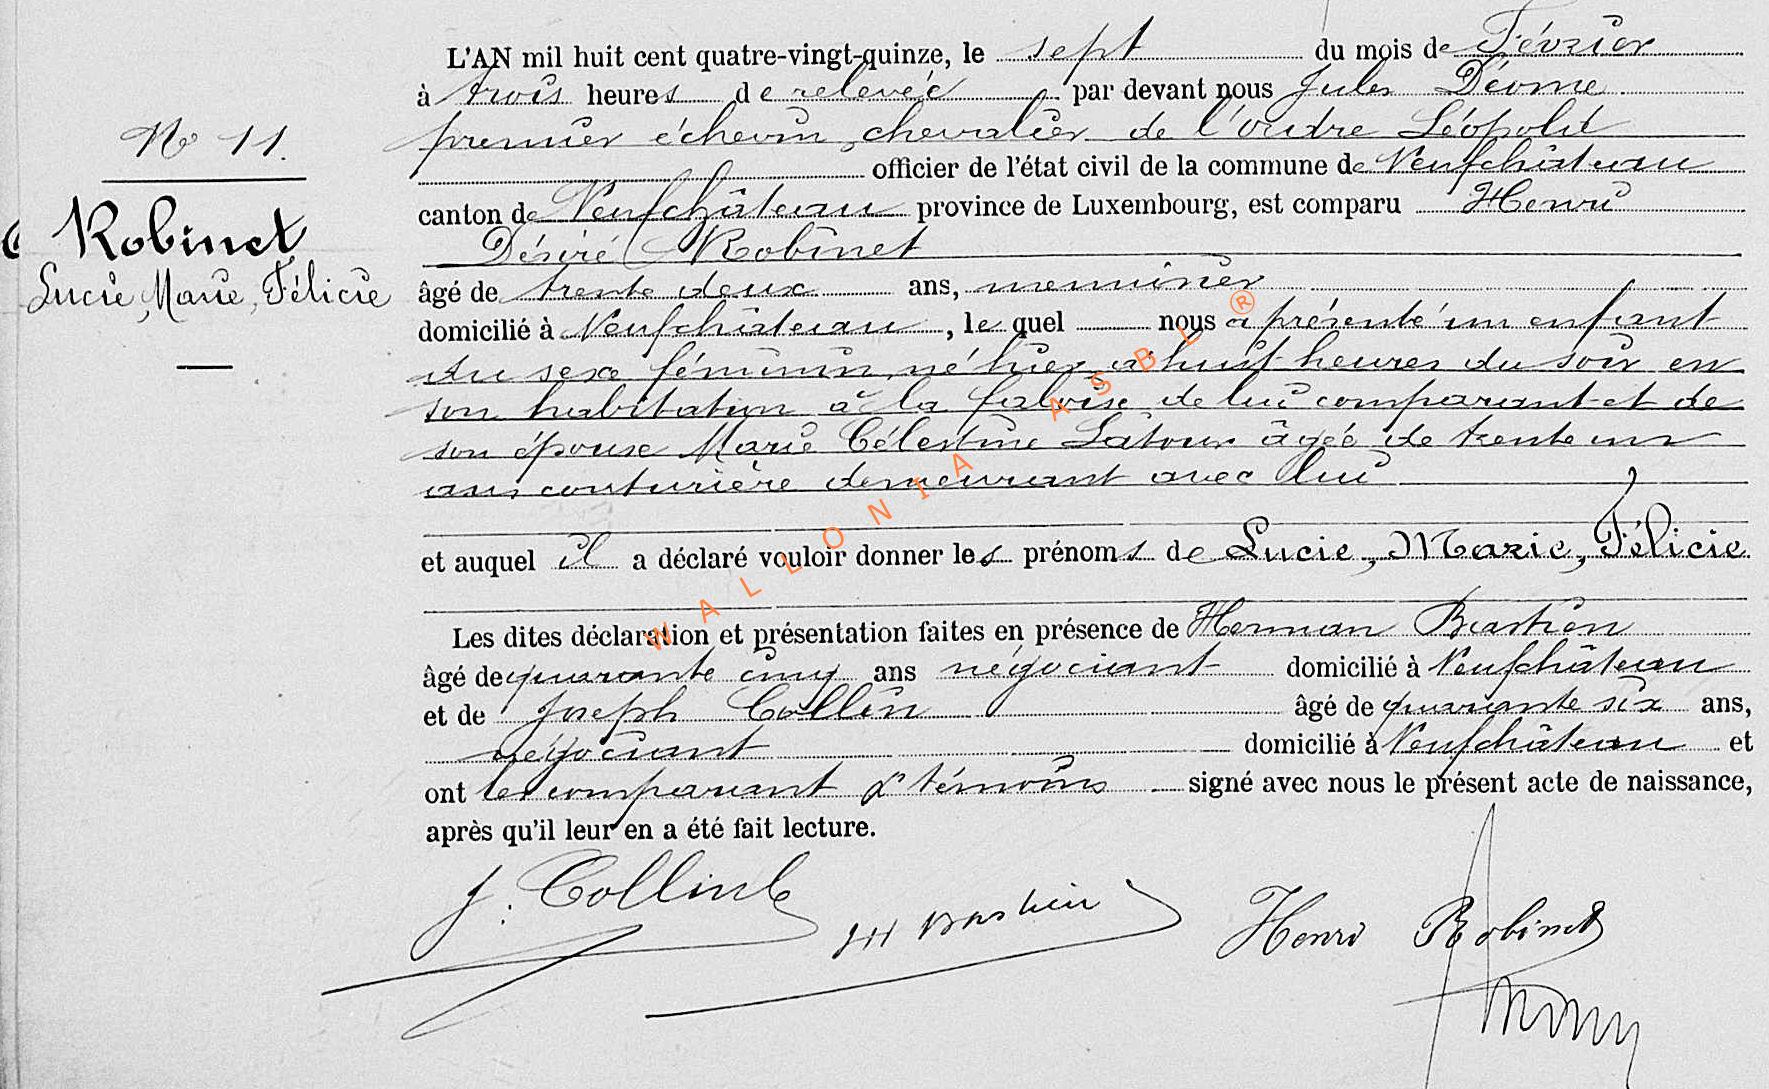 L'AN mil huit cent quatre-vingt-quinze, le sept du mois de Février
à trois heures de relevée par devant nous Jules Déome
premier échevin, chevalier de l'ordre Léopold
officier de l'état civil de la commune de Neufchâteau
canton de Neufchâteau province de Luxembourg, est comparu Henri
Désiré Robinet
âgé de trente deux ans, menuisier
domicilié à Neufchâteau, le quel nous a présenté un enfant
du sexe féminin, né hier à huit heures du soir en
son habitation à la faloise de lui comparant et de
son épouse Marie Célestine Latour âgée de trente un
ans couturière demeurant avec lui
et auquel il a déclaré vouloir donner les prénoms de Lucie, Marie, Félicie
Les dites déclaration et présentation faites en présence de Herman Bastien
âgé de quarante cinq ans négociant domicilié à Neufchâteau
et de Joseph Collin âgé de quarante six ans,
négociant domicilié à Neufchâteau et
ont les comparant & témoins signé avec nous le présent acte de naissance,
après qu'il leur en a été fait lecture.
No 11.
Robinet
Lucie, Marie, Félicie
J. Collin
H Bastien
Henri Robinet
WALLONIA ASBL ®